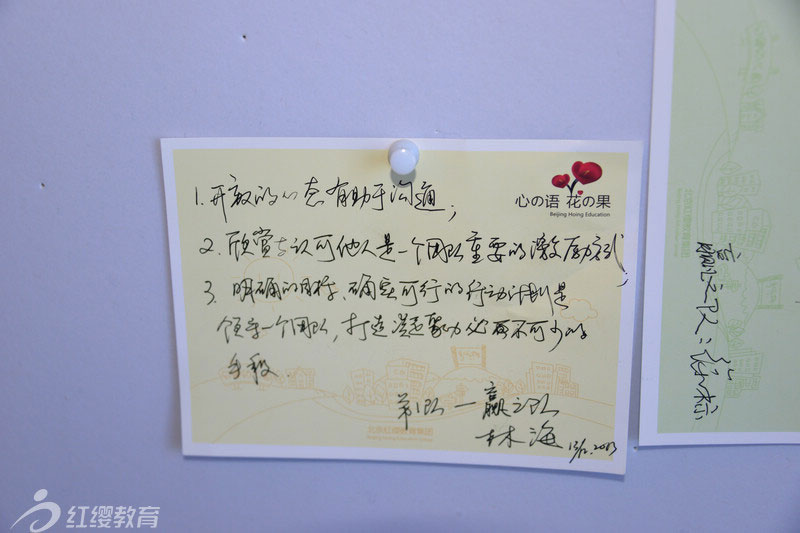 心の语 花の果
Beijing Hoing Education
1. 开放的心态有助于沟通;
2. 欣赏与认可他人是一个团队重要的激励方式;
3. 明确的目标、确实可行的行动计划是
领导一个团队,打造凝聚力必不可少的
手段.
第1队—赢之队
林海 13/12.2013
北京红缨教育集团
Beijing Hoing Education Group
赢之队:
红缨教育